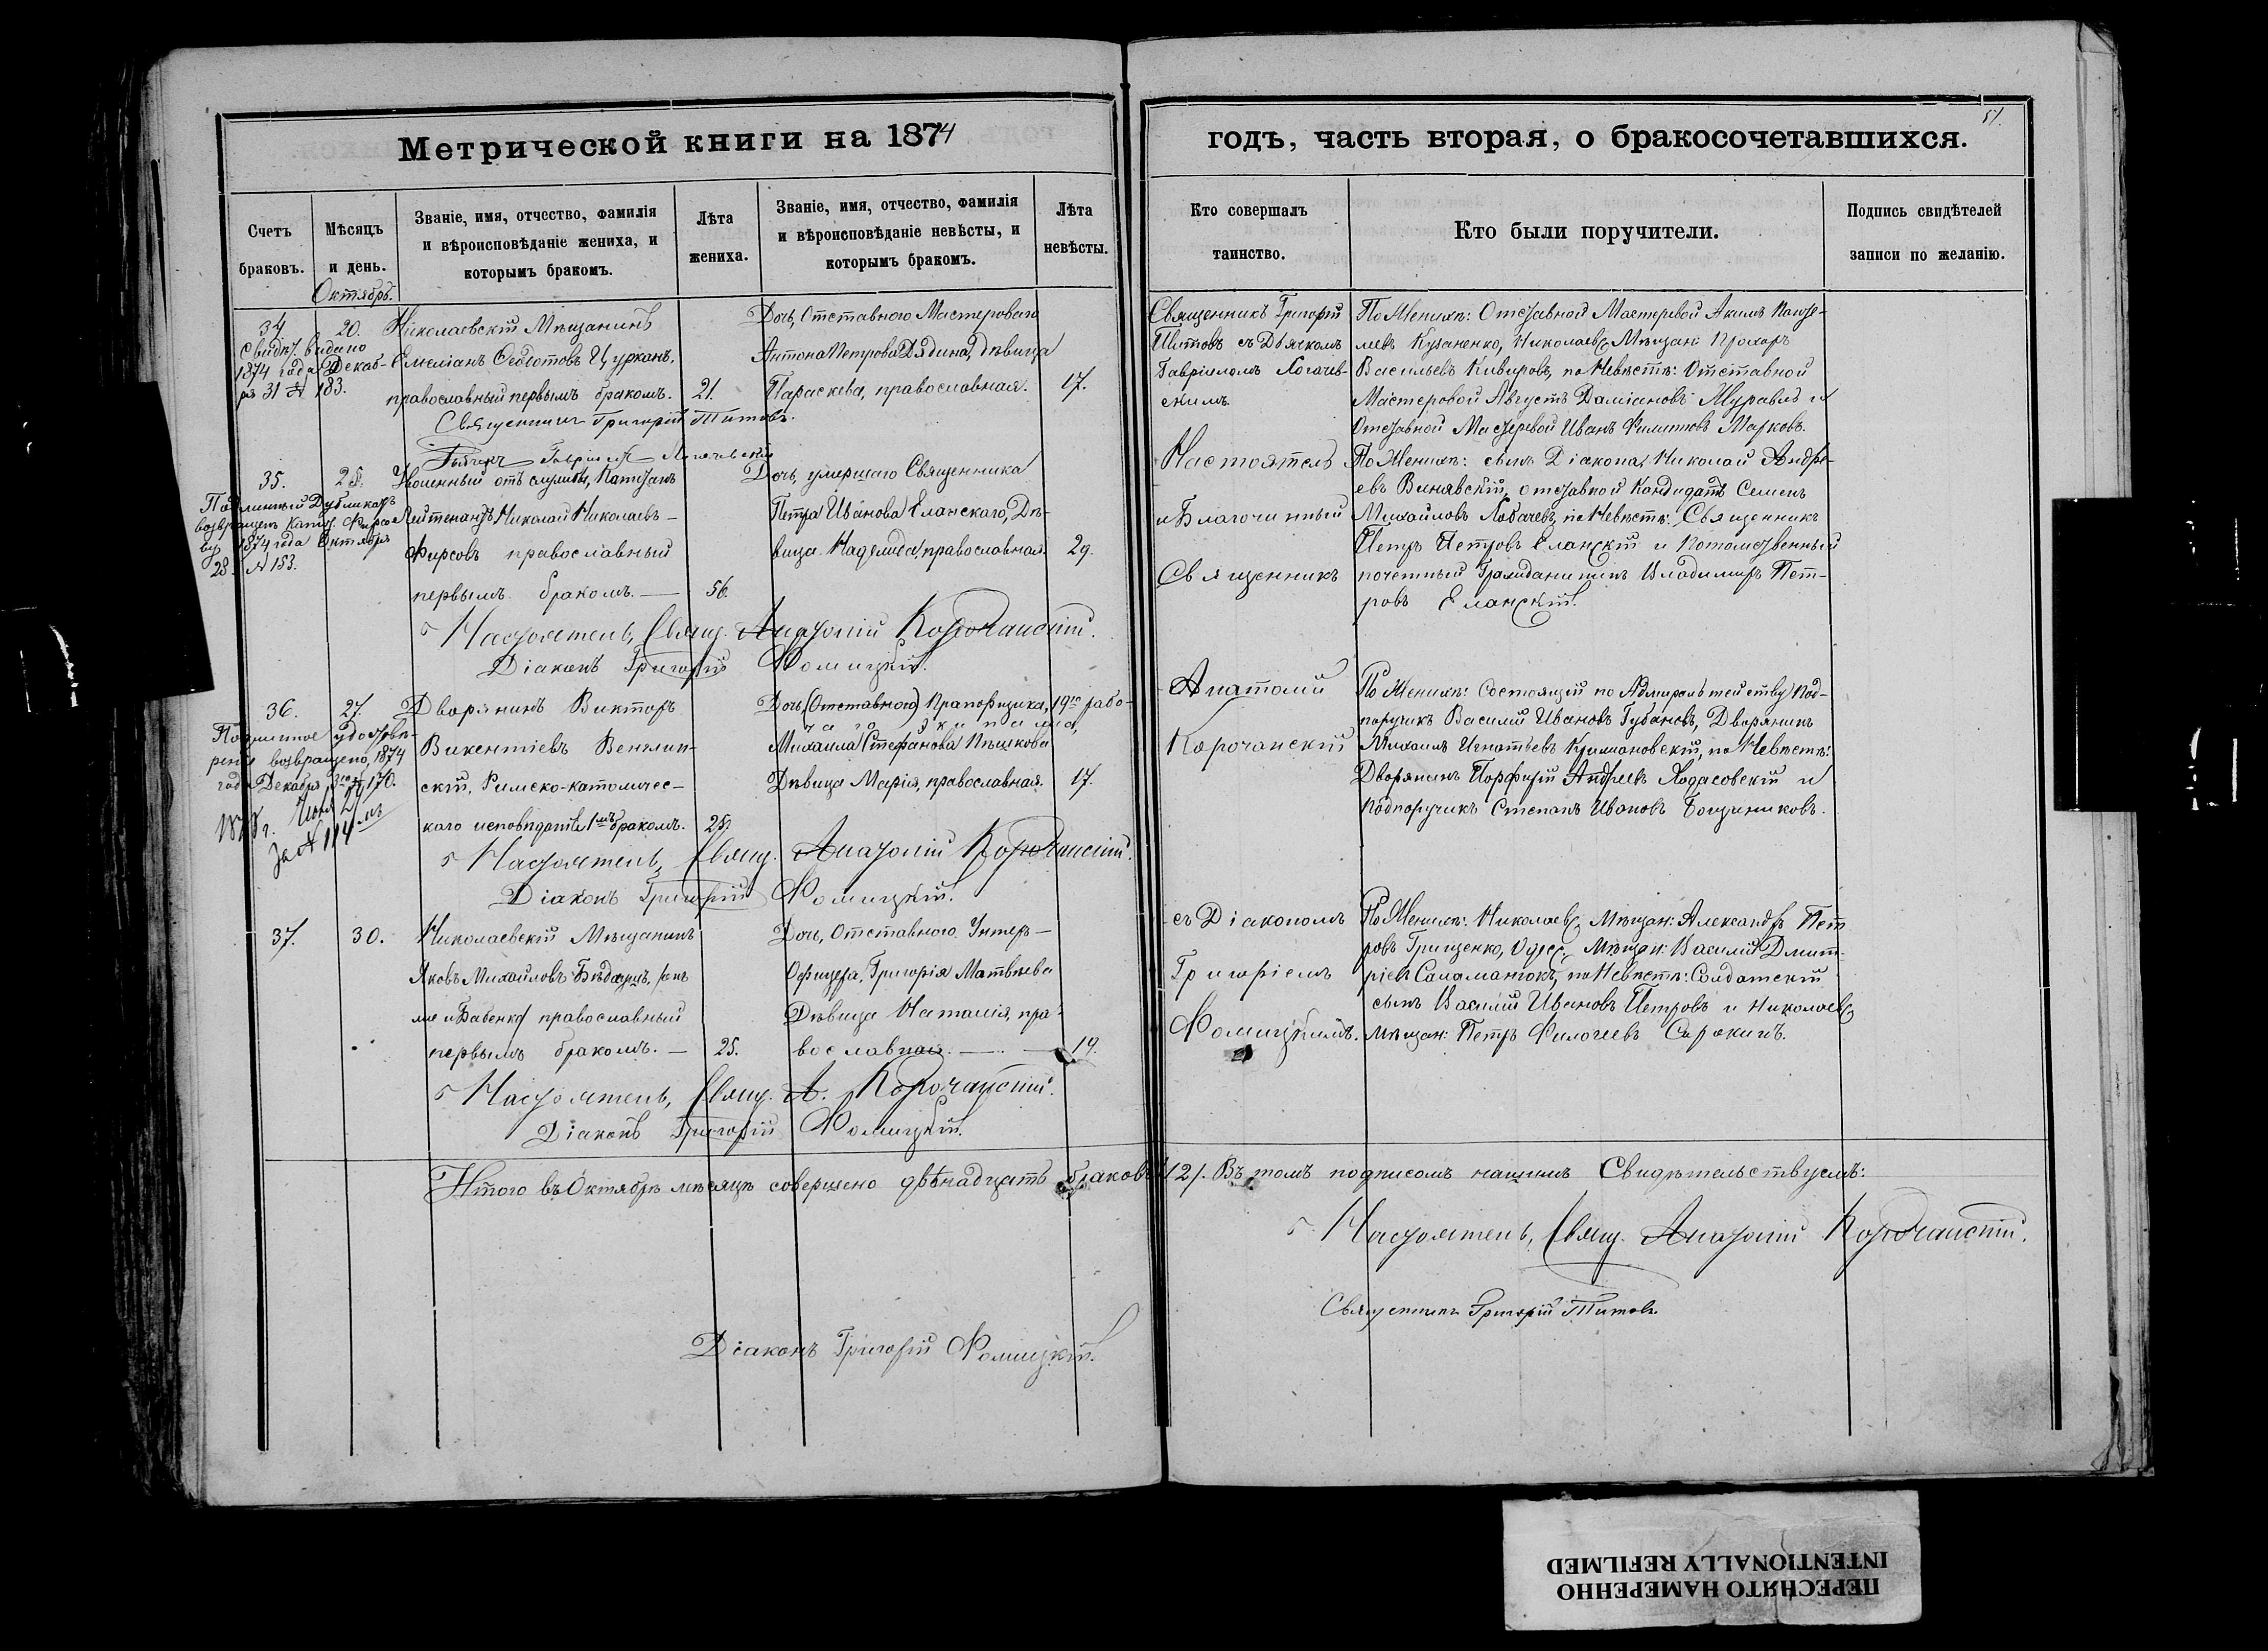 Метрической книги на 1874
годъ, часть вторая, о бракосочетавшихся.
51.
Счетъ браковъ.
Мѣсяцъ и день.
Званіе, имя, отчество, фамилія и вѣроисповѣданіе жениха, и которымъ бракомъ.
Лѣта жениха.
Званіе, имя, отчество, фамилія и вѣроисповѣданіе невѣсты, и которымъ бракомъ.
Лѣта невѣсты.
Кто совершалъ таинство.
Кто были поручители.
Подпись свидѣтелей записи по желанію.
Октябрь.
34.
20.
Свидѣт. видано
1874 года Декаб-
ря 31 № 183.
Николаевскій Мѣщанинъ
Емеліанъ Ѳеодотовъ Цурканъ,
православный первымъ бракомъ.
21.
Дочь, Отставного Мастероваго
Антона Петрова Дядина, дѣвица
Параскева, православная.
17.
Священникъ Григорій Титовъ.
Дьячекъ Гавріилъ Логачевскій
35.
28.
Подлинный Дубликатъ
возвращенъ Капит. Фирсо-
ву 1874 года Октября
28. № 153.
Уволенный отъ службы, Капитанъ
Лейтенантъ Николай Николаевъ
Фирсовъ православный
первымъ бракомъ.
56.
Дочь, умершаго Священника
Петра Иванова Еланскаго, Дѣ-
вица Надежда, православная.
29.
Настоятель, Свящ. Анатолій Корочанскій.
Діаконъ Григорій Фомицкій.
36.
27.
Подлинное удостовѣ-
реніе возвращено, 1874
года Декабря 3го № 170.
За № 114мъ
Дворянинъ Викторъ
Викентіевъ
скій, Римско-католичес-
каго исповѣданія 1мъ бракомъ.
25.
Дочь, (Отставного) Прапорщика, 19го рабо-
чаго экипажа,
Михаила Стефанова Пѣшкова
Дѣвица Марія, православная.
17.
Настоятель, Свящ. Анатолій Корочанскій.
Діаконъ Григорій Фомицкій.
37.
30.
Николаевскій Мѣщанинъ
Яковъ Михайловъ
и Бабенко православный
первымъ бракомъ.
25.
Дочь, Отставного Унтеръ-
Офицера, Григорія Матвѣева
Дѣвица Наталія, пра-
вославная.
19.
Настоятель, Свящ. А. Корочанскій.
Діаконъ Григорій Фомицкій.
Священникъ Григорій
Титовъ съ Дьячкомъ
Гавріиломъ Логачев-
скимъ.
По Женихѣ: Отставной Мастеровой Акимъ
Николаевс. Мѣщан: Прохоръ
Васильевъ Кивировъ, по Невѣстѣ: Отставной
Мастеровой Августъ Даміановъ Журавль и
Отставной Мастеровой Иванъ Филипповъ Марковъ.
Настоятель
и Благочинный
Священникъ
Анатолій
Корочанскій
съ Діакономъ
Григоріемъ
Фомицкимъ.
По Женихѣ: сынъ Діакона, Николай Андре-
евъ Винявскій, отставной Кандидатъ Семенъ
Михайловъ Лобачевъ, по Невѣстѣ: Священникъ
Петръ Петровъ Еланскій и Потомственный
почетный Гражданинъ Владиміръ Пет-
ровъ Еланскій.
По Женихѣ: Состоящій по Адмиралтейству Под-
поручикъ Василій Ивановъ Губановъ, Дворянинъ
Михаилъ Игнатьевъ Кримановскій, по Невѣстѣ:
Дворянинъ Порфирій Андреевъ Ходасовскій и
Подпоручикъ Степанъ Ивановъ
По Женихѣ: Николаевс. Мѣщан: Александръ Пет-
ровъ Грищенко, Одесс. Мѣщан: Василій Дмит-
ріевъ по Невѣстѣ: Солдатскій
сынъ Василій Ивановъ Петровъ и Николаевс.
мѣщан: Петръ Сарокинъ.
Итого въ Октябрѣ мѣсяцѣ совершено двѣнадцать браковъ 12. Въ томъ подписомъ нашимъ Свидѣтельствуемъ:
Настоятель, Свящ. Анатолій Корочанскій.
Священникъ Григорій Титовъ
Діаконъ Григорій Фомицкій.
ПЕРЕСНЯТО НАМЕРЕННО
INTENTIONALLY REFILMED